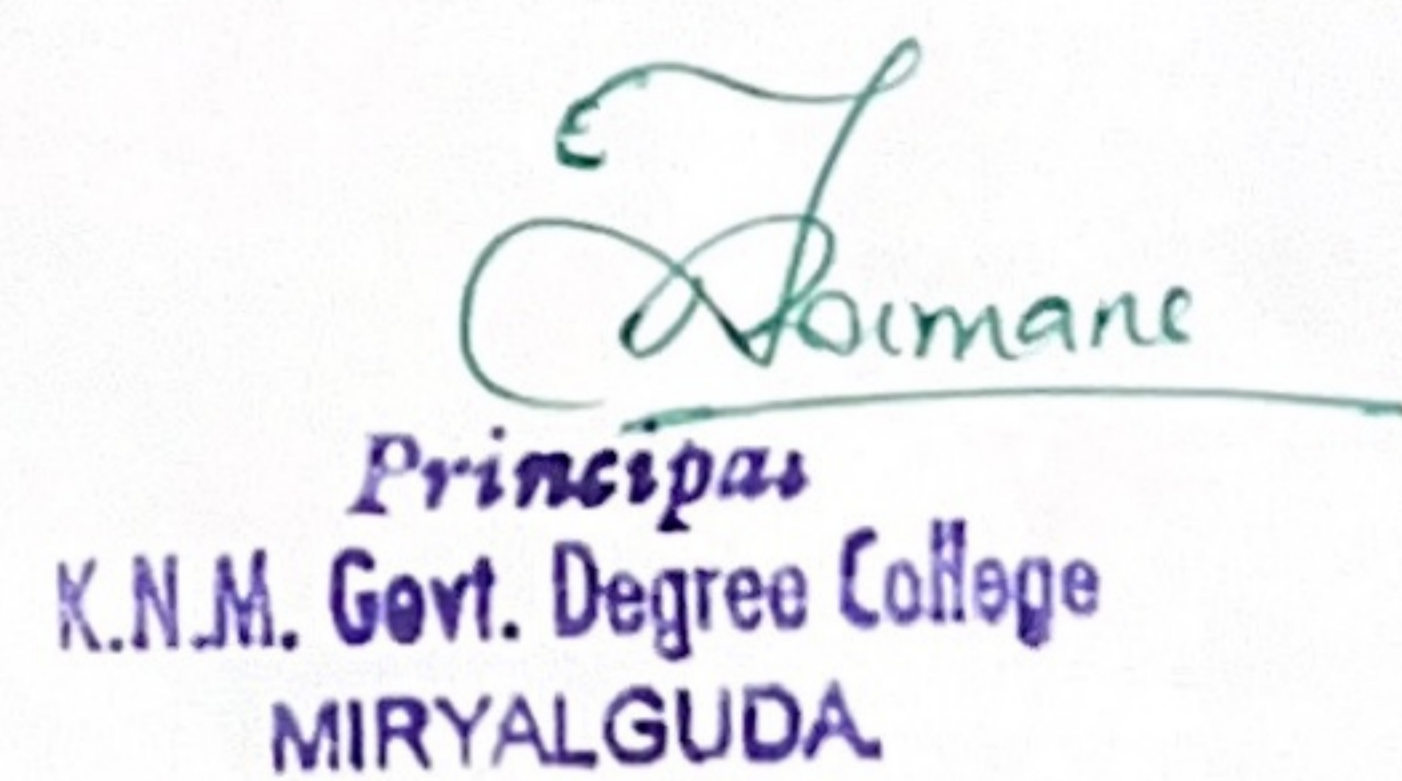 Principal
K.N.M. Govt. Degree College
MIRYALGUDA.